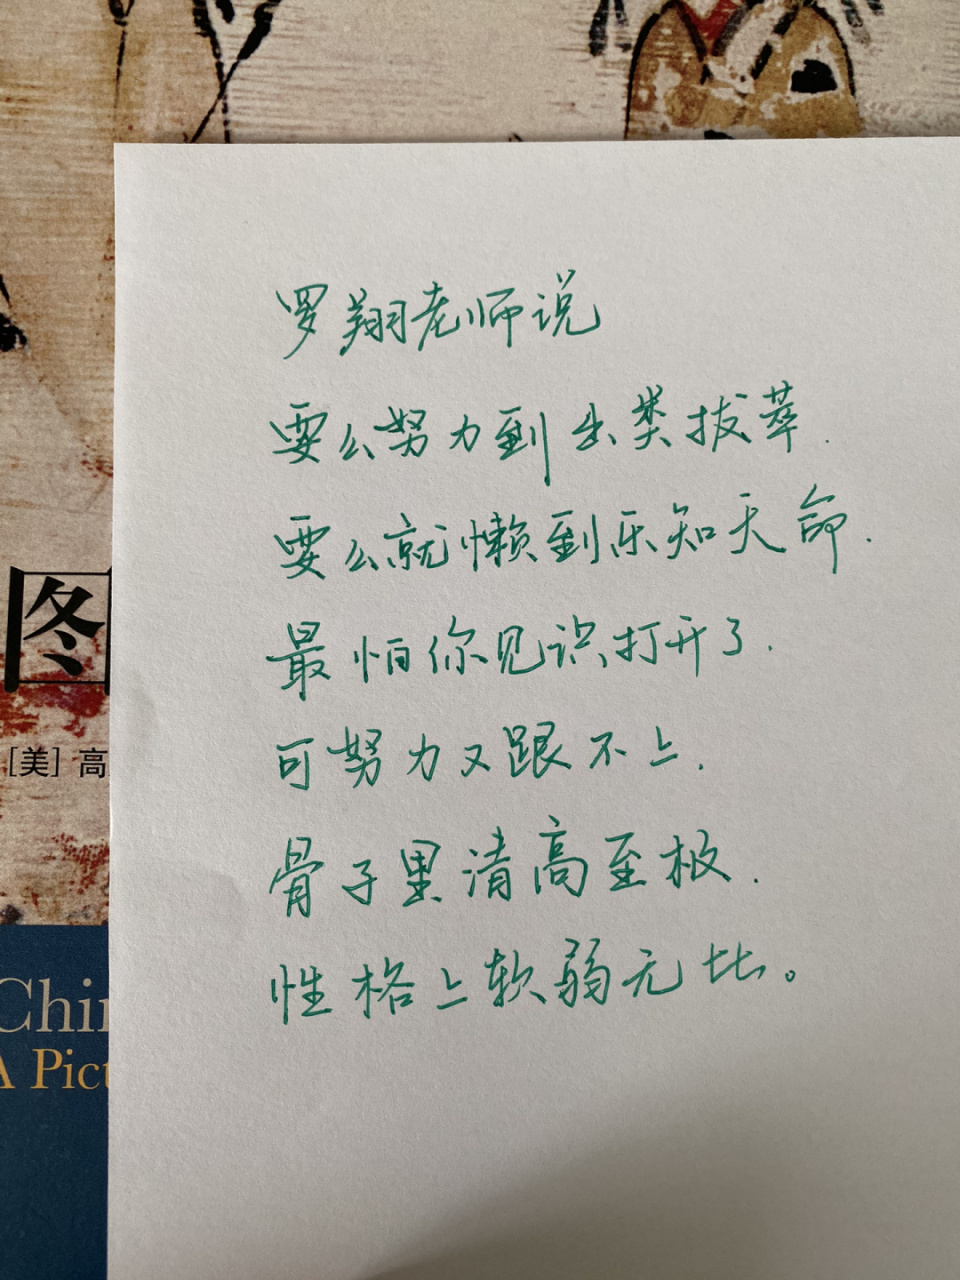 罗翔老师说
要么努力到出类拔萃.
要么就懒到乐知天命.
最怕你见识打开了.
可努力又跟不上.
骨子里清高至极.
性格上软弱无比。
图
[美] 高
Chin
A Pict